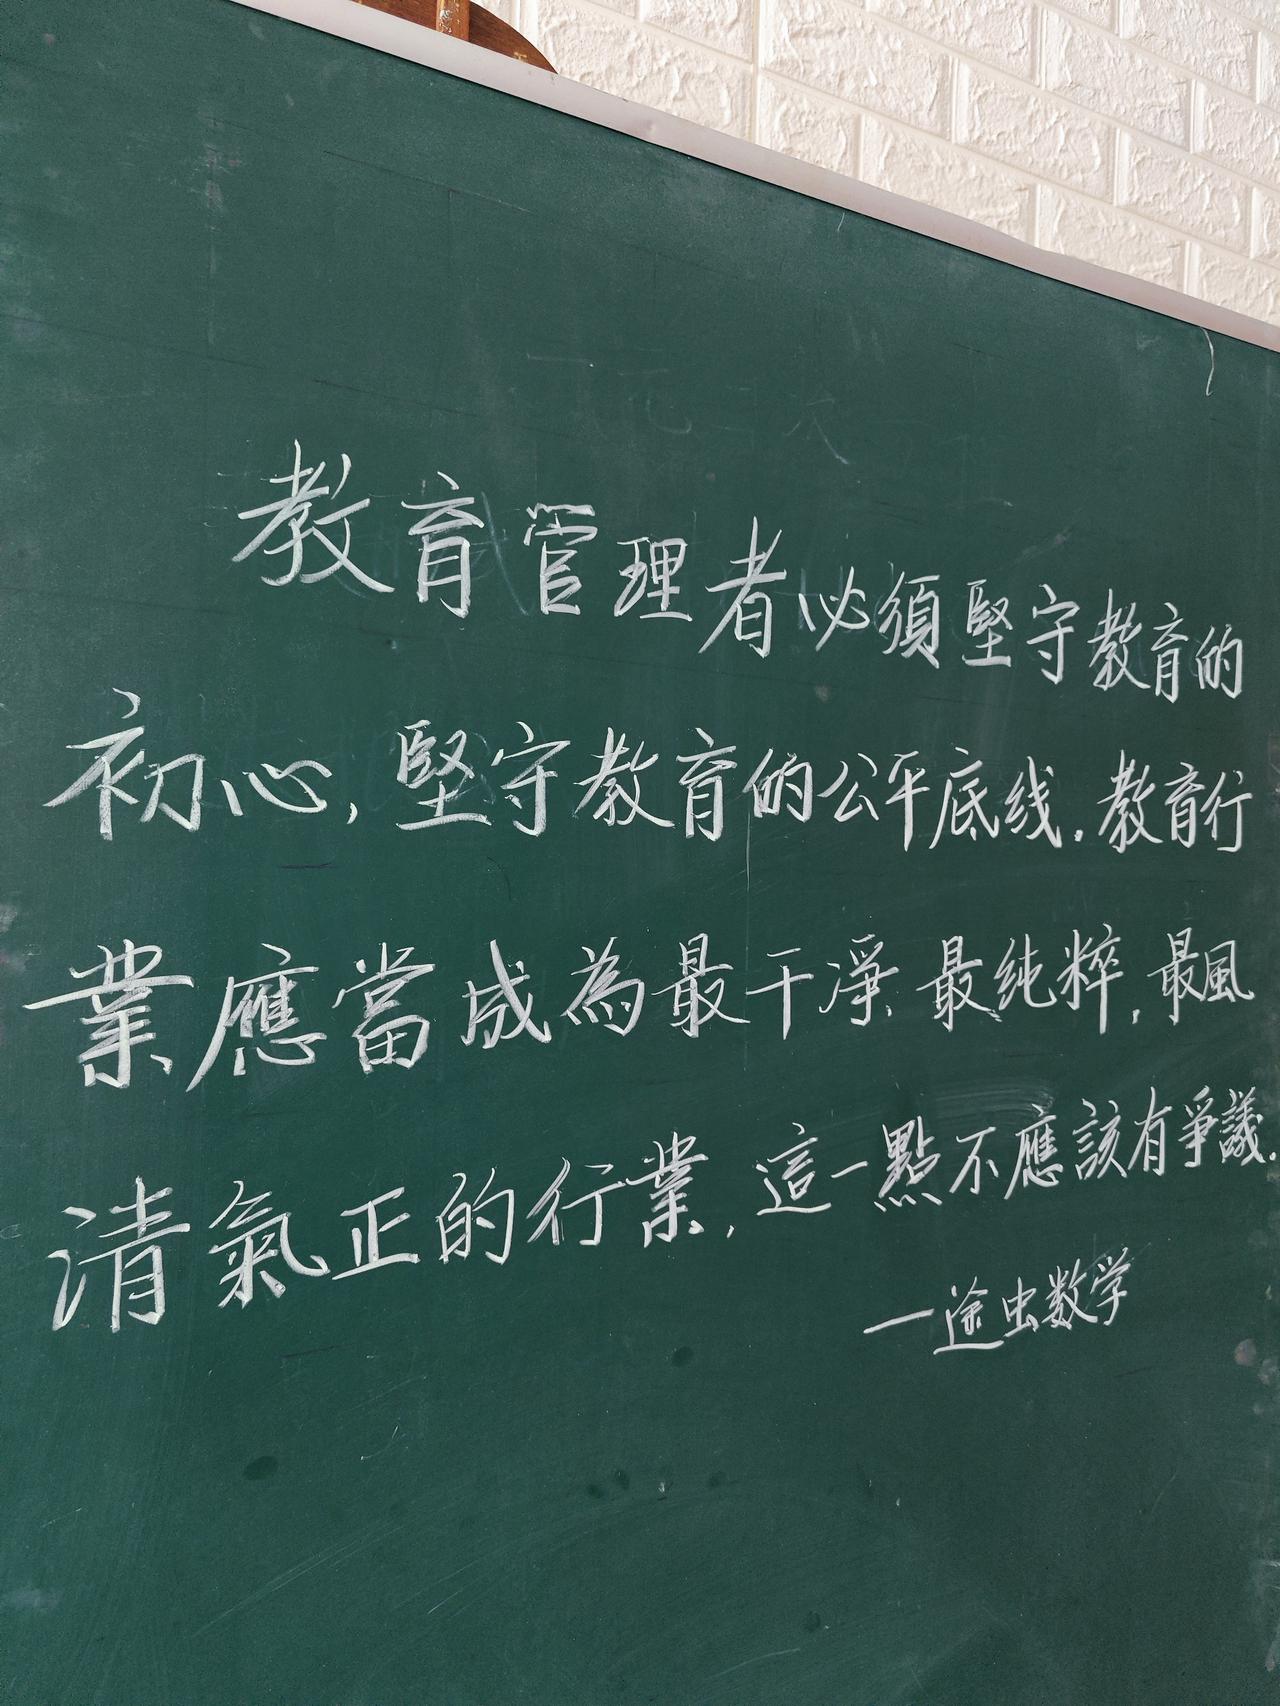 教育管理者必須堅守教育的
初心,堅守教育的公平底线.教育行
業應當成為最干淨 最纯粹,最風
清氣正的行業,這一點不應該有爭議.
一途虫数学